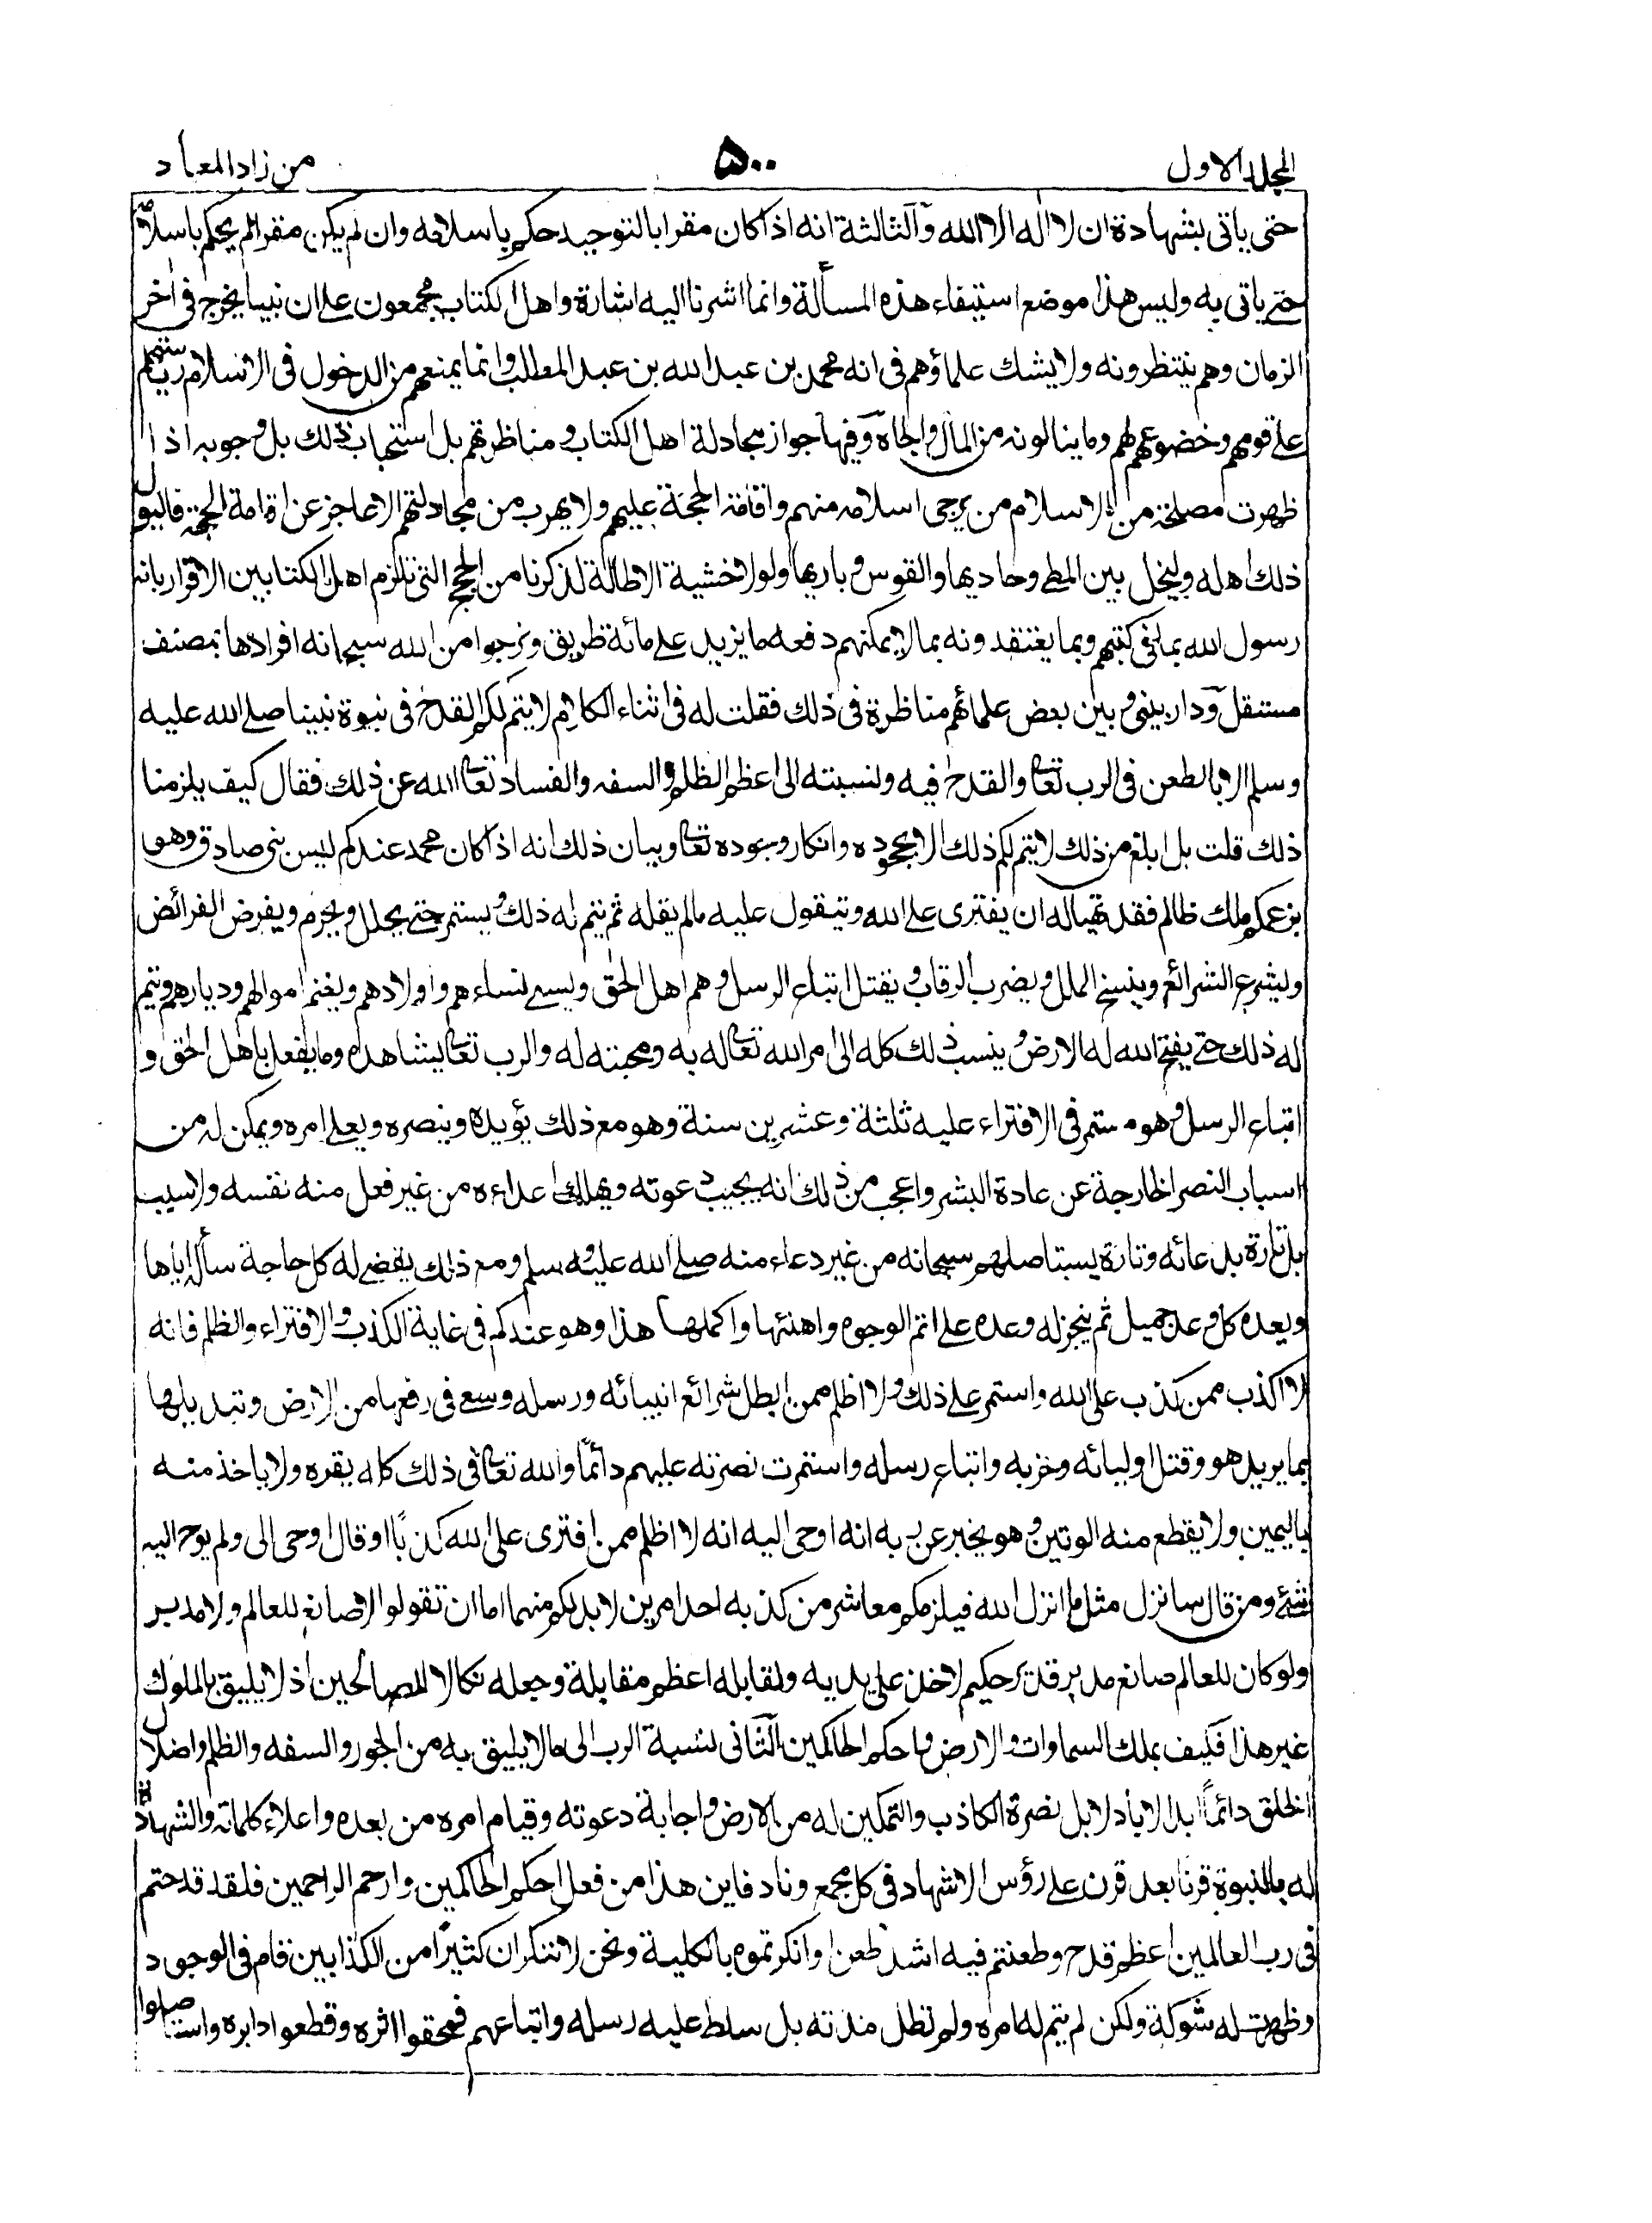 المجلد الاول
۵۰۰
من زاد المعاد
حتى ياتى بشهادة ان لا اله الا الله وآلثالثة انه اذا كان مقرا بالتوحيد حكم باسلامه وان لم يكن مقرا لم يحكم باسلامه
حتے ياتى به وليس هذا موضع استيفاء هذه المسألة وانما اشرنا اليه اشارة واهل الكتاب مجمعون علے ان نبيا يخرج فى اخر
الزمان وهم ينتظرونه ولا يشك علماؤهم فى انه محمد بن عبد الله بن عبد المطلب وانما يمنعهم من الدخول فى الاسلام رياستهم
علے قومهم وخضوعهم لهم وما ينالونه من المال والجاه وَفيها جواز مجادلة اهل الكتاب ومناظرتهم بل استحباب ذلك بل وجوبه اذا
ظهرت مصلحته من الاسلام من يرجى اسلامه منهم واقامة الحجة عليهم ولا يهرب من مجادلتهم الا عاجز عن اقامة الحجة فليول
ذلك اهله وليخل بين المطے وحاديها والقوس وباريها ولولا خشية الاطالة لذكرنا من الحجج التى تلزم اهل الكتابين الاقرار بانه
رسول الله بما فى كتبهم وبما يعتقدونه بما لا يمكنهم دفعه ما يزيد علے مائة طريق ونرجوا من الله سبحانه افرادها بمصنف
مستقل وَدار بينى وبين بعض علمائهم مناظرة فى ذلك فقلت له فى اثناء الكلام لا يتم لكم القدح فى نبوة نبينا صلے الله عليه
وسلم الا بالطعن فى الرب تعالى والقدح فيه ونسبته الى اعظم الظلم والسفه والفساد تعالى الله عن ذلك فقال كيف يلزمنا
ذلك قلت بل ابلغ من ذلك لا يتم لكم ذلك الا بجحوده وانكار وجوده تعالى وبيان ذلك انه اذا كان محمد عندكم ليس بنى صادق وهو
بزعمكم ملك ظالم فقد تهيا له ان يفترى علے الله ويتقول عليه ما لم يقله ثم يتم له ذلك ويستمر حتے يحلل ويحرم ويفرض الفرائض
ويشرع الشرائع وينسخ الملل ويضرب الرقاب ويقتل اتباع الرسل وهم اهل الحق ويسبے نساءهم واولادهم ويغنم اموالهم وديارهم ويتم
له ذلك حتے يفتح الله له الارض وينسب ذلك كله الى امر الله تعالى له به ومحبته له والرب تعالى يشاهده وما يفعل باهل الحق و
اتباع الرسل وهو مستمر فى الافتراء عليه ثلثة وعشرين سنة وهو مع ذلك يؤيده وينصره ويعلے امره ويمكن له من
اسباب النصر الخارجة عن عادة البشر واعجب من ذلك انه يجيب دعوته ويهلك اعداءه من غير فعل منه نفسه ولا سبب
بل تارة بدعائه وتارة يستاصلهم سبحانه من غير دعاء منه صلے الله عليه وسلم ومع ذلك يقضے له كل حاجة سأله اياها
ويعده كل وعد جميل ثم ينجز له وعده علے اتم الوجوه واهنئها واكملها هذا وهو عندكم فى غاية الكذب والافتراء والظلم فانه
لا اكذب ممن كذب على الله واستمر علے ذلك ولا اظلم ممن ابطل شرائع انبيائه ورسله وسعے فى رفعها من الارض وتبديلها
بما يريد هو وقتل اوليائه وحزبه واتباع رسله واستمرت نصرته عليهم دائمًا والله تعالى فى ذلك كله يقره ولا ياخذ منه
باليمين ولا يقطع منه الوتين وهو يخبر عن ربه انه اوحى اليه انه لا اظلم ممن افترى على الله كذبًا او قال اوحى الى ولم يوح اليه
شئے ومن قال سانزل مثل ما انزل الله فيلزمكم معاشر من كذبه احد امرين لا بد لكم منهما اما ان تقولوا لا صانع للعالم ولا مدبر
ولو كان للعالم صانع مدبر قدير حكيم لاخذ علے يديه ولقابله اعظم مقابلة وجعله نكالا للصالحين اذ لا يليق بالملوك
غير هذا فكيف بملك السماوات والارض واحكم الحاكمين آلثانى نسبة الرب الى ما لا يليق به من الجور والسفه والظلم واضلال
الخلق دائمًا ابد الاباد لا بل نصرة الكاذب والتمكين له من الارض واجابة دعوته وقيام امره من بعده واعلاء كلماته والشهادة
له بالنبوة قرنا بعد قرن علے رؤس الاشهاد فى كل مجمع وناد فاين هذا من فعل احكم الحاكمين وارحم الراحمين فلقد قدحتم
فى رب العالمين اعظم قدح وطعنتم فيه اشد طعن وانكرتموه بالكلية ونحن لا ننكر ان كثيرًا من الكذابين قام فى الوجود
وظهرت له شوكة ولكن لم يتم له امره ولم تطل مدته بل سلط عليه رسله واتباعهم فمحقوا اثره وقطعوا دابره واستاصلوا